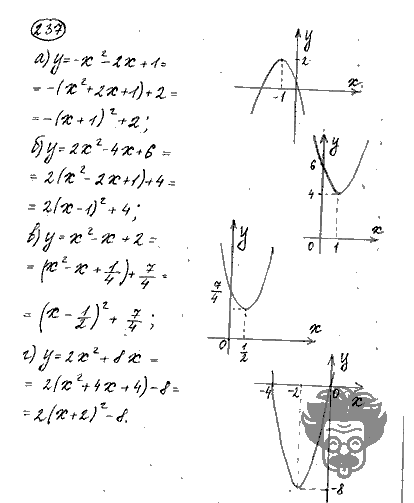 237
а) y = -x² - 2x + 1 =
= -(x² + 2x + 1) + 2 =
= -(x + 1)² + 2;
y
2
x
-1
б) y = 2x² - 4x + 6 =
= 2(x² - 2x + 1) + 4 =
= 2(x - 1)² + 4;
y
6
4
0
1
x
в) y = x² - x + 2 =
= (x² - x + 1/4) + 7/4 =
= (x - 1/2)² + 7/4;
y
7/4
0
1/2
x
г) y = 2x² + 8x =
= 2(x² + 4x + 4) - 8 =
= 2(x + 2)² - 8.
y
-4
-2
0
x
-8